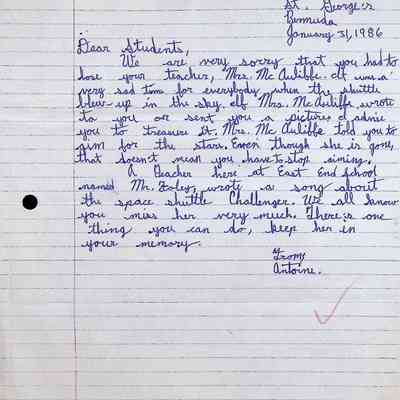 St. George's
Bermuda
January 31, 1986
Dear Students,
We are very sorry that you had to
lose your teacher, Mrs. Mc Auliffe. It was a
very sad time for everybody when the shuttle
blew up in the sky. If Mrs. Mc Auliffe wrote
to you or sent you a picture, I advise
you to treasure it. Mrs. Mc Auliffe told you to
aim for the stars. Even though she is gone,
that doesn't mean you have to stop aiming.
A teacher here at East End School
named Mr. Foley, wrote a song about
the space shuttle Challenger. We all know
you miss her very much. There's one
thing you can do, keep her in
your memory.
From,
Antoine.